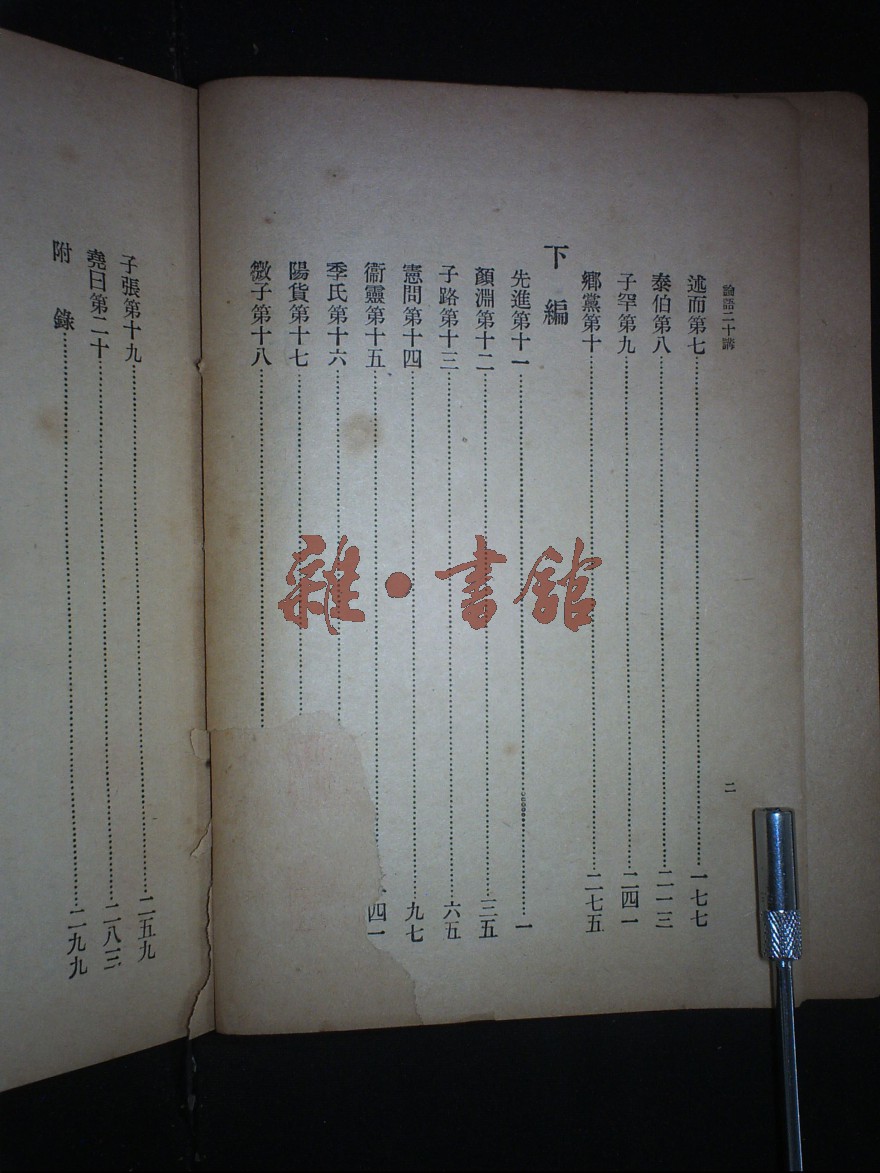 論語二十講
二
述而第七……一七七
泰伯第八……二一三
子罕第九……二四一
鄉黨第十……二七五
下編
先進第十一……一
顏淵第十二……三五
子路第十三……六五
憲問第十四……九七
衞靈第十五……四一
季氏第十六……
陽貨第十七……
微子第十八……
子張第十九……二五九
堯曰第二十……二八三
附錄……二九九
雜·書館